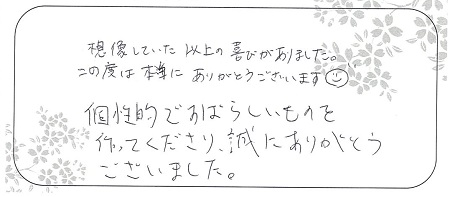 想像していた以上の喜びがありました。
この度は本当に ありがとうございます
個性的ですばらしいものを
作ってくださり、誠にありがとう
ございました。